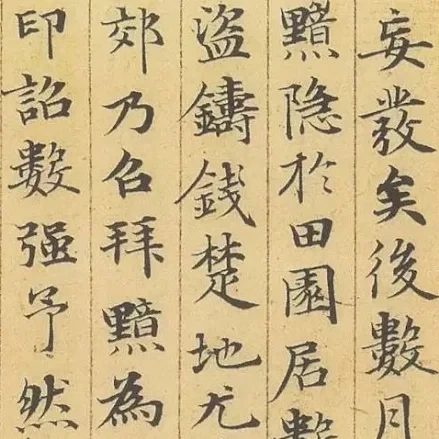 妄發矣後數月
黯隐於田園居數
盜鑄錢楚地尤
郊乃召拜黯為
印詔數强予然